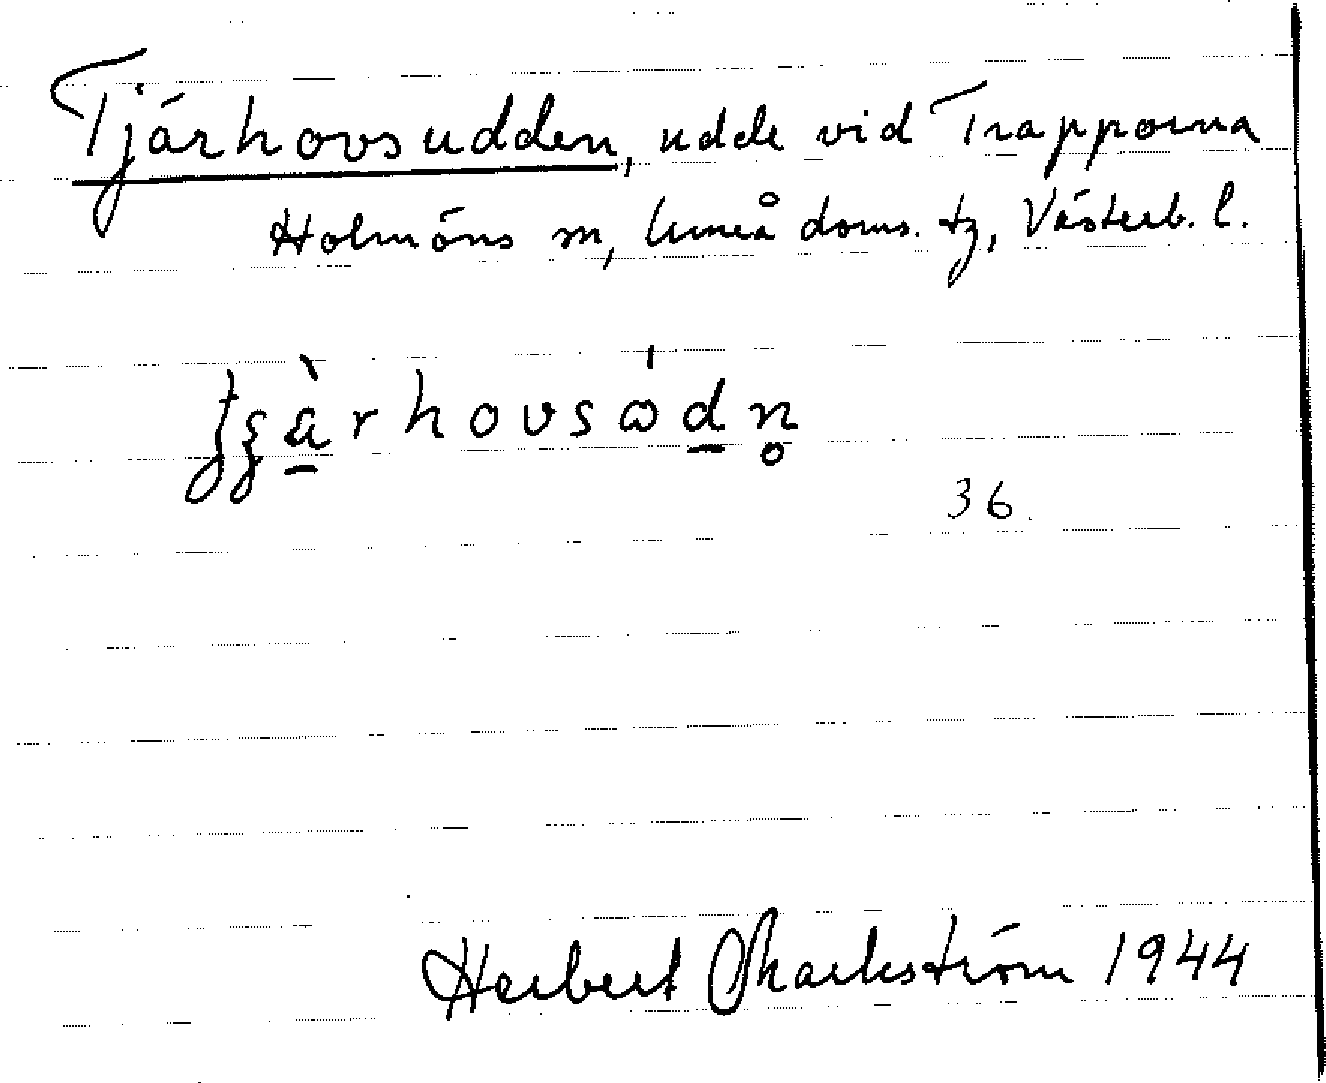 Tjärhovsudden, udde vid Trapporna
Holmöns sn, Umeå doms. tg, Västerb. l.
ʈʂàrhovsódn̥
36.
Herbert Markström 1944